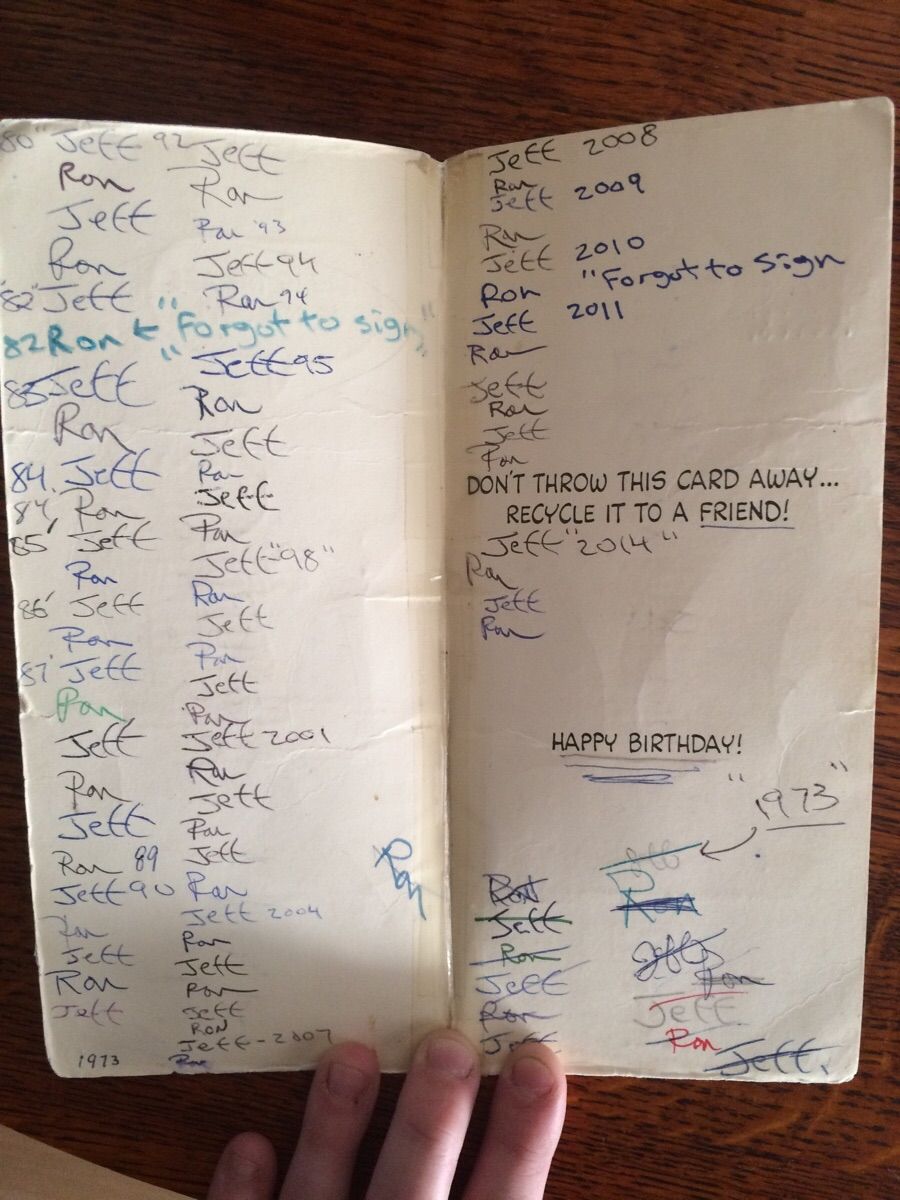 80" Jeff
Ron
Jeff
Ron
"82" Jeff
82 Ron ← "Forgot to sign"
83 Jeff
Ron
84. Jeff
84' Ron
85' Jeff
Ron
86' Jeff
Ron
87' Jeff
Ron
Jeff
Ron
Jeff
Ron 89
Jeff 90
Ron
Jeff
Ron
Jeff
1973
92 Jeff
Ron
Ron '93
Jeff 94
Ron 94
Jeff 95
Ron
Jeff
Ron
Jeff
Ron
Jeff "98"
Ron
Jeff
Ron
Jeff
Ron
Jeff 2001
Ron
Jeff
Ron
Jeff
Ron
Jeff 2004
Ron
Jeff
Ron
Jeff
RON
Jeff - 2007
Ron
Ron
Jeff 2008
Ron
Jeff 2009
Ron
Jeff 2010
Ron "Forgot to sign
Jeff 2011
Ron
Jeff
Ron
Jeff
Ron
DON'T THROW THIS CARD AWAY...
RECYCLE IT TO A FRIEND!
Jeff "2014"
Ron
Jeff
Ron
HAPPY BIRTHDAY!
"1973"
Jeff
Ron
Jeff
Ron
Jeff
Ron
Jeff
Ron
Jeff
Ron
Jeff
Ron
Jeff